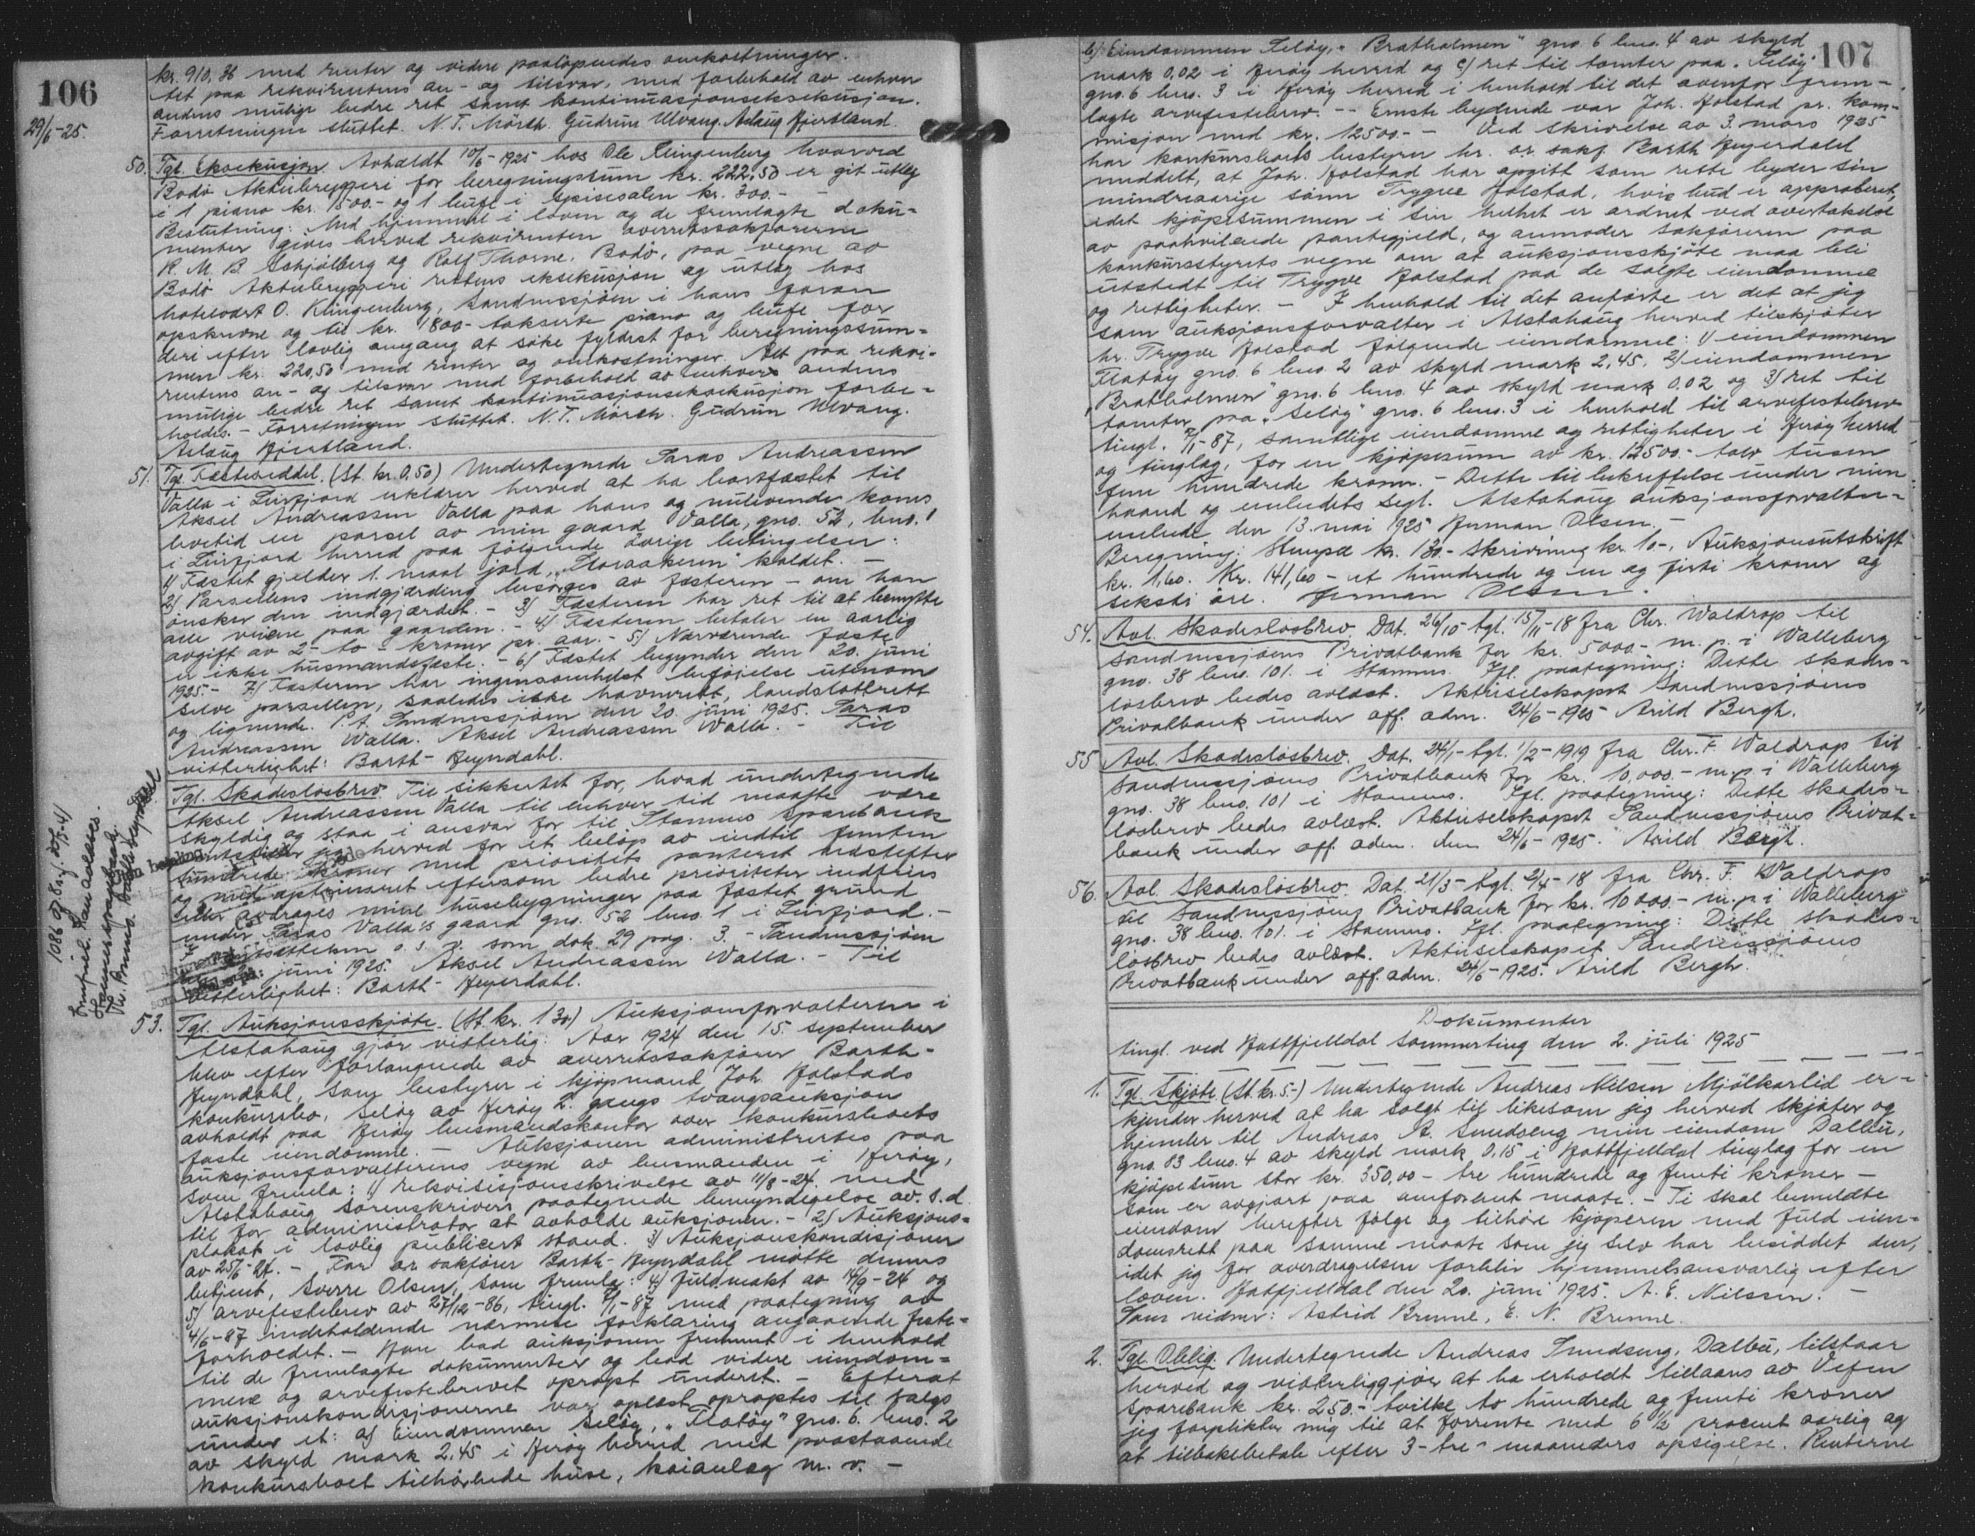 106
29/6-25
kr. 910,36 med renter og videre paaløpendes omkostninger.
Alt paa rekvirentens an- og tilsvar, med forbehold av enhver
andens mulige bedre ret samt kontinuasjonseksekusjon.
Forretningen sluttet. N. T. Mörch. Gudrun Ulvang. Aslaug Hjertland.
50. Tgl. Eksekusjon Avholdt 10/6-1925 hos Ole Klingenberg hvorved
Bodø Aktiebryggeri for beregningssum kr. 222,50 er git utlæg
i 1 piano kr. 1500.- og 1 bufe i spisesalen kr. 300.-
Beslutning: Med hjemmel i loven og de fremlagte doku-
menter gives herved rekvirenten overretssakførerne
R. M. B. Schjølberg og Rolf Thorne, Bodø, paa vegne av
Bodø Aktiebryggeri rettens eksekusjon og utlæg hos
hotelvært O. Klingenberg, Sandnessjøen i hans foran
opskrevne og til kr. 1800.- takserte piano og bufe for
deri efter lovlig omgang at søke fyldest for beregningssum-
men kr. 220,50 med renter og omkostninger. Alt paa rekvi-
rentens an- og tilsvar med forbehold av enhvers andens
mulige bedre ret samt kontinuasjonseksekusjon forbe-
holdes. - Forretningen sluttet. N. T. Mörch. Gudrun Ulvang.
Aslaug Hjertland.
51. Tgl. Fæsteseddel. (St. kr. 0,50) Undertegnede Saras Andreassen
Valla i Leirfjord erklærer herved at ha bortfæstet til
Aksel Andreassen Valla paa hans og nulevende kones
levetid en parsel av min gaard Valla, gno. 52, bno. 1
i Leirfjord herred paa følgende øvrige betingelser:
1) Fæstet gjelder 1. maal jord, "Storaakeren" kaldet. -
2) Parsellens indgjærding besørges av fæsteren - om han
ønsker den indgjærdet. - 3) Fæsteren har ret til at benytte
alle veiene paa gaarden. - 4) Fæsteren betaler en aarlig
avgift av 2.- to - kroner pr. aar. - 5) Nærværende fæste
er ikke husmandsfæste. - 6) Fæstet begynder den 20. juni
1925.- 7) Fæsteren har ingensomhelst beføielse utenom
selve parsellen, saaledes ikke havneret, landslotteret
og lignende. P. t. Sandnessjøen den 20. juni 1925. Saras
Andreassen Walla. Aksel Andreassen Walla. - Til
vitterlighet: Barth-Heyerdahl.
Tgl. Skadesløsbrev. Til sikkerhet for, hvad undertegnede
Aksel Andreassen Valla til enhver tid maatte være
skyldig og staa i ansvar for til Stamnes sparebank
pantsetter jeg herved for et beløp av indtil femten
hundrede kroner med prioritets panteret næstefter
og med opprioritet eftersom bedre prioriteter indfries
eller avdrages mine husebygninger paa fæstet grund
under Saras Valla's gaard gno. 52 bno. 1 i Leirfjord. -
som dok. 29 pag. 3. - Sandnessjøen
juni 1925. Aksel Andreassen Walla. - Til
vitterlighet: Barth-Heyerdahl.
53. Tgl. Auksjonsskjøte. (St. kr. 130) Auksjonsforvalteren i
Alstahaug gjør vitterlig: Aar 1924 den 15. september
blev efter forlangende av overretssakfører Barth-
Heyerdahl, som bestyrer i kjøpmand Joh. Folstads
konkursbo, Seløy av Herøy 2. gangs tvangsauksjon
avholdt paa Herøy lensmandskontor over konkursboets
faste eiendomme. - Auksjonen administrertes paa
auksjonsforvalterens vegne av lensmanden i Herøy,
som fremla: 1) rekvisisjonsskrivelse av 11/8-24. med
Alstahaug sorenskriveri paategnede bemyndigelse av s. d.
til for administrator at avholde auksjonen. - 2) Auksjons-
plakat i lovlig publicert stand. 3) Auksjonskondisjoner
av 25/6-24. - For o.r. sakfører Barth-Heyerdahl møtte dennes
betjent, Sverre Olsen, som fremla: 4) fuldmakt av 14/9-24 og
5) arvefestebrev av 27/12-86, tingl. 7/1-87 med paategning av
4/6-87 indeholdende nærmere forklaring angaaende feste-
forholdet. - Han bad auksjonen fremmet i henhold
til de fremlagte dokumenter og bad videre eiendom-
mene og arvefestebrevet opropt underet. - Efterat
auksjonskondisjonerne var oplæst oproptes til salgs
under et: a) Eiendommen Seløy, "Flatøy" gno. 6. bno. 2
av skyld mark 2,45 i Herøy herred med paastaaende
konkursboet tilhørende huse, kaianlæg m. v. -
1086 08
Stamnes sparebank
107
b) Eiendommen Seløy, "Bratholmen" gno. 6 bno. 4 av skyld
mark 0,02 i Herøy herred og c) ret til tomter paa "Seløy"
gno. 6 bno. 3 i Herøy herred i henhold til det ovenfor frem-
lagte arvefestebrev. - - Eneste bydende var Joh. Folstad pr. kom-
misjon med kr. 12500.- - Ved skrivelse av 3. mars 1925
har konkursboets bestyrer hr. o.r. sakf. Barth Heyerdahl
meddelt, at Joh. Folstad har opgitt som rette byder sin
mindreaarige sønn Trygve Folstad, hvis bud er approberet,
idet kjøpesummen i sin helhet er ordnet ved overtakelse
av paahvilende pantegjeld, og anmoder sakføreren paa
konkursstyrets vegne om at auksjonsskjøte maa bli
utstedt til Trygve Folstad paa de solgte eiendomme
og rettigheter. - I henhold til det anførte er det at jeg
som auksjonsforvalter i Alstahaug herved tilskjøter
hr. Trygve Folstad følgende eiendomme: 1) eiendommen
Flatøy gno. 6 bno. 2 av skyld mark 2,45. 2) eiendommen
"Bratholmen" gno. 6 bno. 4 av skyld mark 0.02 og 3) ret til
tomter paa "Seløy" gno. 6 bno. 3 i henhold til arvefestebrev
tingl. 7/1-87, samtlige eiendomme og rettigheter i Herøy herred
og tinglag, for en kjøpesum av kr. 12500.- tolv tusen
fem hundrede kroner. - Dette til bekræftelse under min
haand og embedets segl. Alstahaug auksjonsforvalter-
embede den 13. mai 1925 Herman Olsen. -
Beregning: Stempel kr. 130.- Skrivning kr. 10.-, Auksjonsutskrift
kr. 1,60. Kr. 141,60 - et hundrede og en og firti kroner og
seksti øre. Herman Olsen.
54. Avl. Skadesløsbrev. Dat. 26/10- tgl. 15/11-18 fra Chr. Waldrop til
Sandnessjøens Privatbank for kr. 5000.- m. p. i Walleberg
gno. 38 bno. 101. i Stamnes. Ifl. paategning: Dette skades-
løsbrev bedes avlæst. Aktieselskapet Sandnessjøens
Privatbank under off. adm. 24/6-1925 Arild Bergh.
55 Avl. Skadesløsbrev. Dat. 24/1- tgl. 1/2-1919 fra Chr. F. Waldrop til
Sandnessjøens Privatbank for kr. 10,000.- m. p. i Walleberg
gno. 38 bno. 101 i Stamnes. Ifl. paategning: Dette skades-
løsbrev bedes avlæst. Aktieselskapet Sandnessjøens Privat-
bank under off. adm. den 24/6-1925. Arild Bergh.
56. Avl. Skadesløsbrev. Dat. 21/3- tgl. 2/4-18 fra Chr. F. Waldrop
til Sandnessjøens Privatbank for kr. 10 000.- m. p. i Walleberg
gno. 38 bno. 101. i Stamnes. Ifl. paategning: Dette skades-
løsbrev bedes avlæst. Aktieselskapet Sandnessjøens
Privatbank under off. adm. 24/6-1925. Arild Bergh.
Dokumenter
tingl. ved Hattfjelldal sommerting den 2. juli 1925
1. Tgl. Skjøte (St. kr. 5.-) Undertegnede Andreas Nilsen Mjölkarlid er-
kjender herved at ha solgt til likesom jeg herved skjøter og
hjemler til Andreas A. Smedseng min eiendom Dalbu,
gno. 83 bno. 4 av skyld mark 0.15 i Hattfjelldal tinglag for en
kjøpesum stor kr. 350,00 - tre hundrede og femti kroner -
som er avgjort paa omforent maate. - Ti skal bemeldte
eiendom herefter følge og tilhøre kjøperen med fuld eien-
domsrett paa samme maate som jeg selv har besiddet den,
idet jeg for overdragelsen forblir hjemmelsansvarlig efter
loven. Hatfjelldal den 20. juni 1925. A. E. Nilssen. -
Som vidner: Astrid Brenne, E. N. Brenne.
2. Tgl. Oblig. Undertegnede Andreas Smedseng, Dalbu, tilstaar
herved og vitterliggjør at ha erholdt tillaans av Vefsn
Sparebank kr. 250.- hvilke to hundrede og femti kroner
jeg forplikter mig til at forrente med 6 1/2 procent aarlig og
at tilbakebetale efter 3-tre- maaneders opsigelse. Renterne